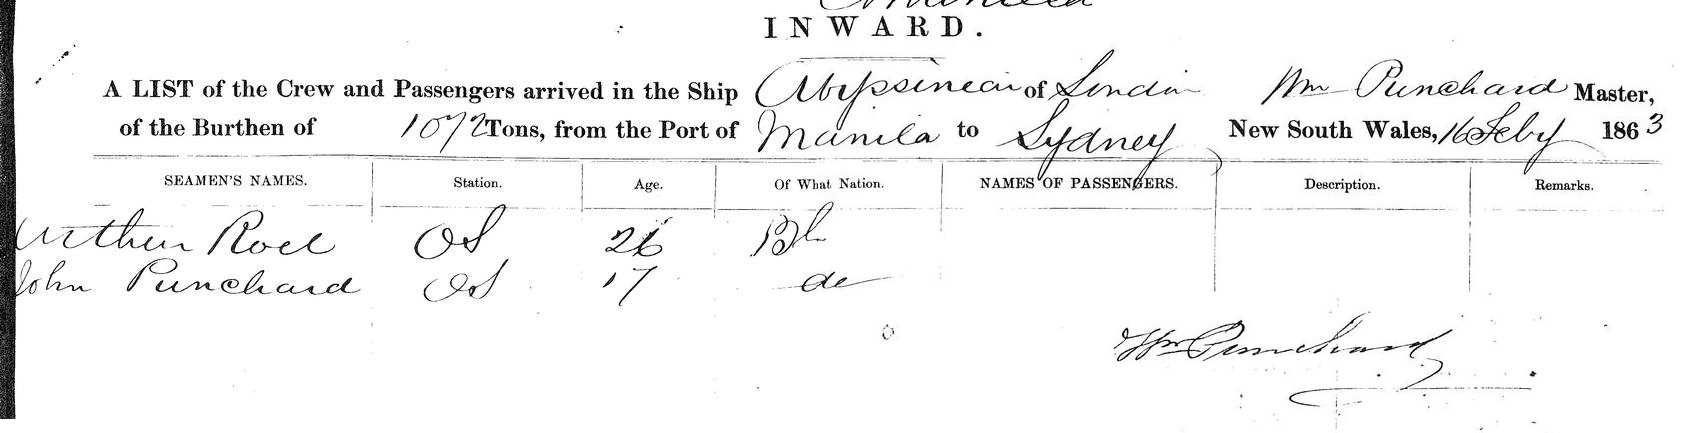 INWARD.
A LIST of the Crew and Passengers arrived in the Ship Abyssinian of London Wm Punchard Master,
of the Burthen of 1072 Tons, from the Port of Manila to Sydney New South Wales, 16 Feby 1863
SEAMEN'S NAMES. Station. Age. Of What Nation. NAMES OF PASSENGERS. Description. Remarks.
Arthur Roel OS 26
John Punchard OS 17 do
Wm Punchard